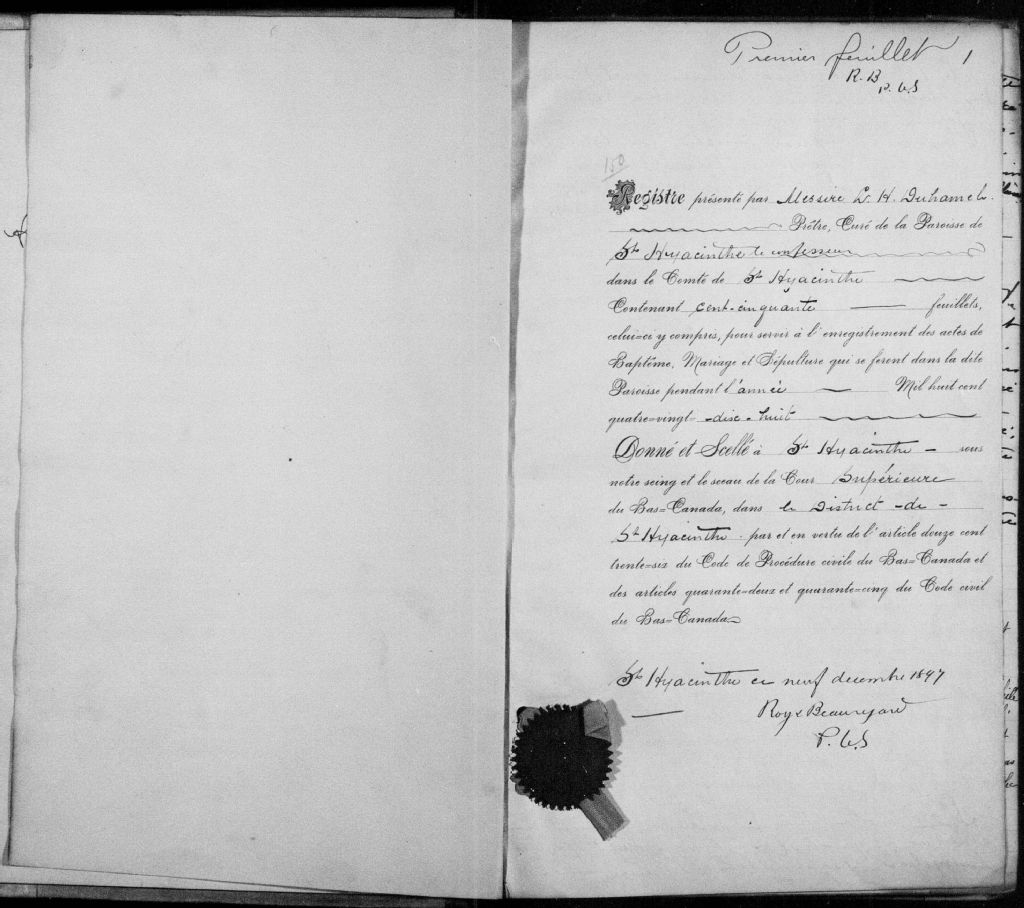 Premier feuillet 1
R. B
P. C. S
150
Registre présenté par Messire L. H. Duhamel.
Prêtre, Curé de la Paroisse de
St Hyacinthe le confesseur
dans le Comté de St Hyacinthe
Contenant cent-cinquante feuillets,
celui=ci y compris, pour servir à l'enregistrement des actes de
Baptême, Mariage et Sépulture qui se feront dans la dite
Paroisse pendant l'année Mil huit cent
quatre=vingt=disc-huit
Donné et Scellé à St Hyacinthe - sous
notre seing et le sceau de la Cour Supérieure
du Bas=Canada, dans le District -de-
St Hyacinthe. par et en vertu de l'article douze cent
trente=six du Code de Procédure civile du Bas=Canada et
des articles quarante=deux et quarante=cinq du Code civil
du Bas=Canada
St Hyacinthe ce neuf decembre 1897
Roy & Beauregard
P. C. S